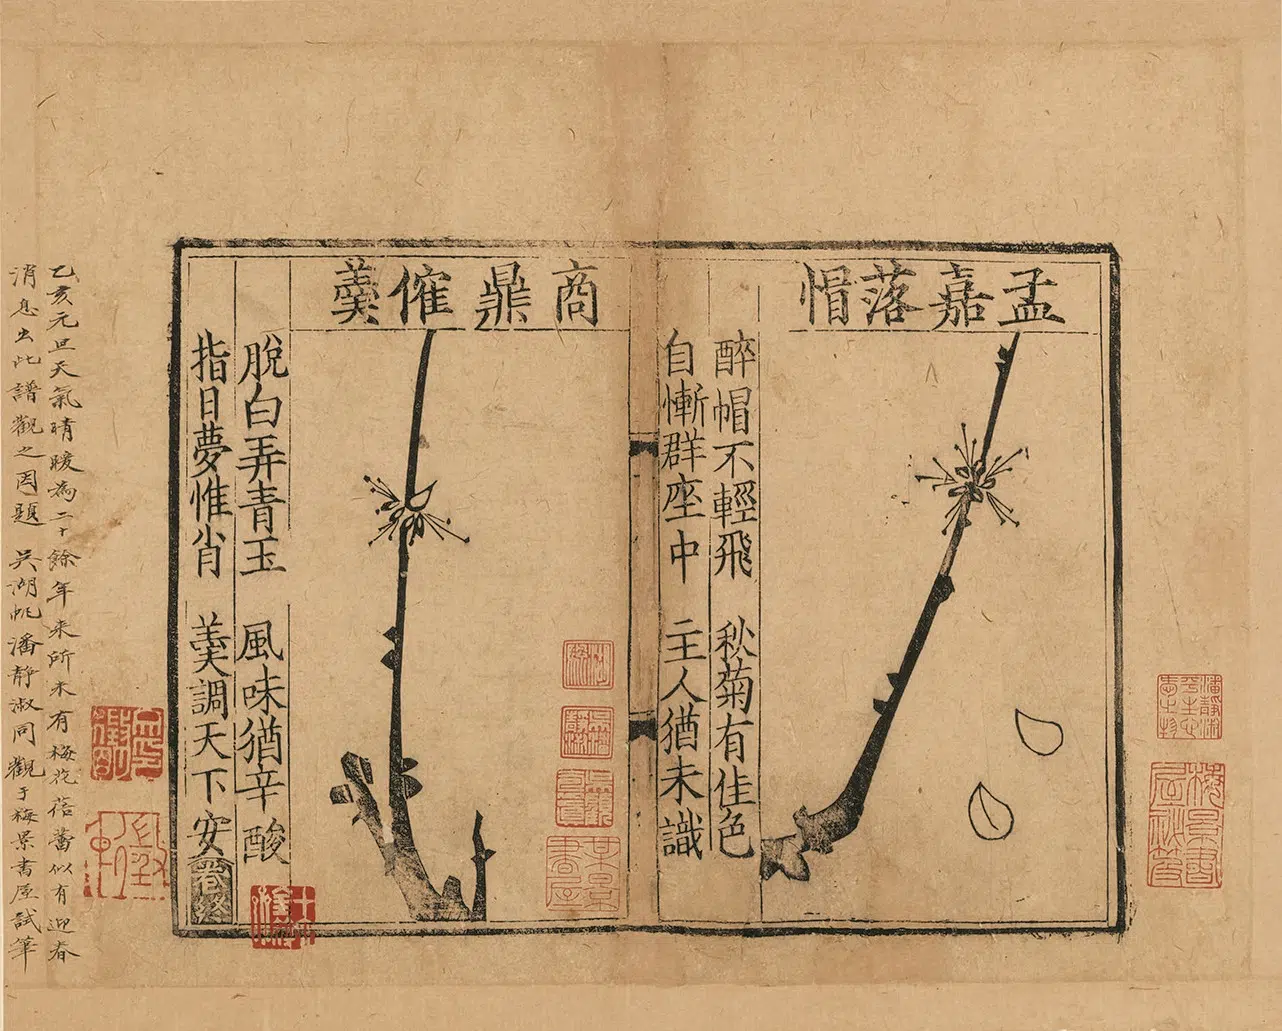 孟嘉落帽
醉帽不輕飛 秋菊有佳色
自慚群座中 主人猶未識
商鼎催羹
脫白弄青玉 風味猶辛酸
指日夢惟肖 羹調天下安
卷終
乙亥元旦天氣晴暖為二十餘年來所未有梅花蓓蕾似有迎春
消息出此譜觀之因題 吳湖帆潘靜淑同觀于梅景書屋試筆
潘靜淑
梅景書屋秘笈